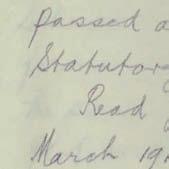 passed a
Statutor
Read
March 19